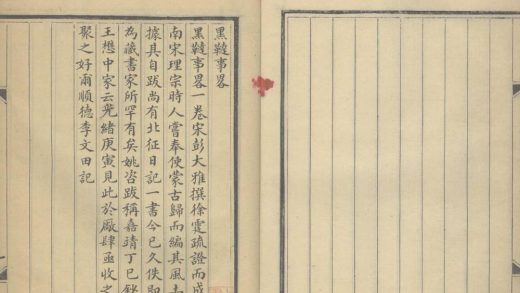 黑韃事畧
黑韃事畧一卷宋彭大雅撰徐霆疏證而成
南宋理宗時人嘗奉使蒙古歸而編其風土
據其自跋尚有北征日記一書今已久佚即
為藏書家所罕有矣姚咨跋稱嘉靖丁巳鈔
王懋中家云光緒庚寅見此於廠肆亟收之
聚之好爾順德李文田記